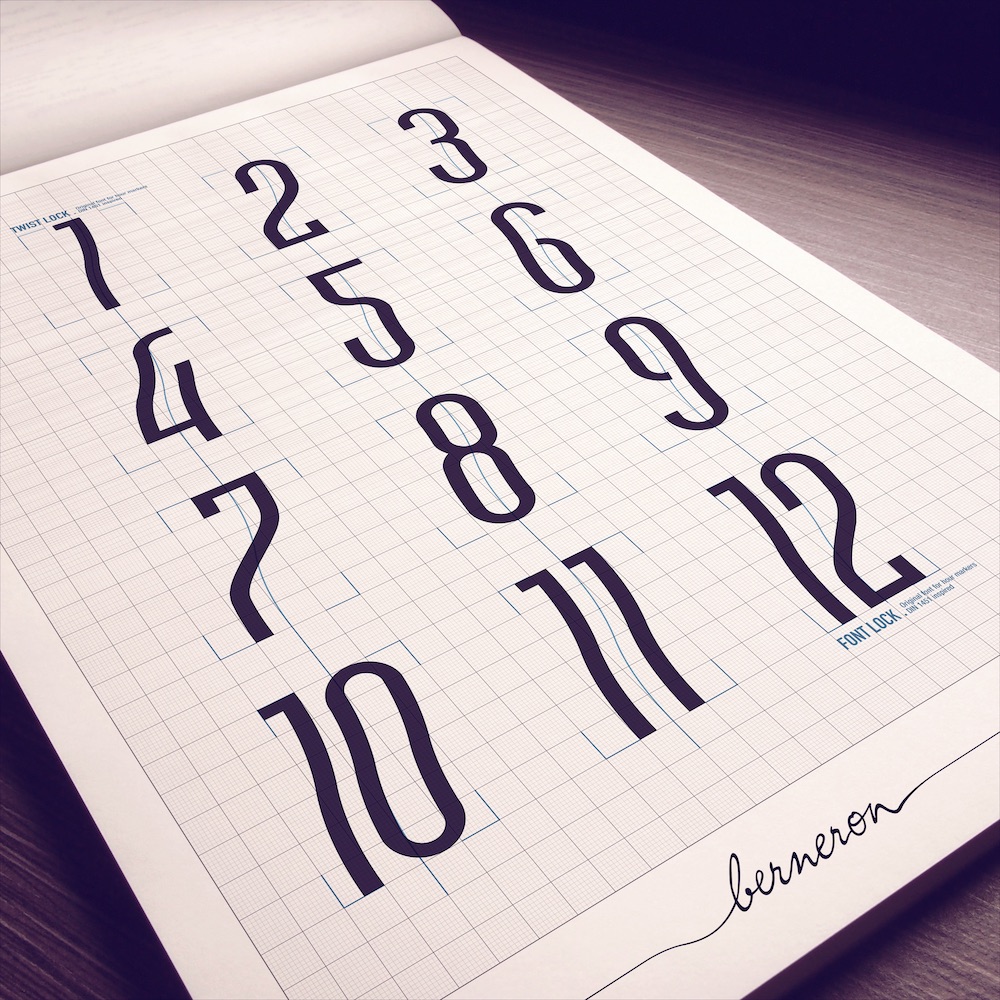 TWIST LOCK
Original font for hour markers
. DIN 1451 inspired
1 2 3
4 5 6
7 8 9
10 11 12
FONT LOCK
Original font for hour markers
. DIN 1451 inspired
berneron